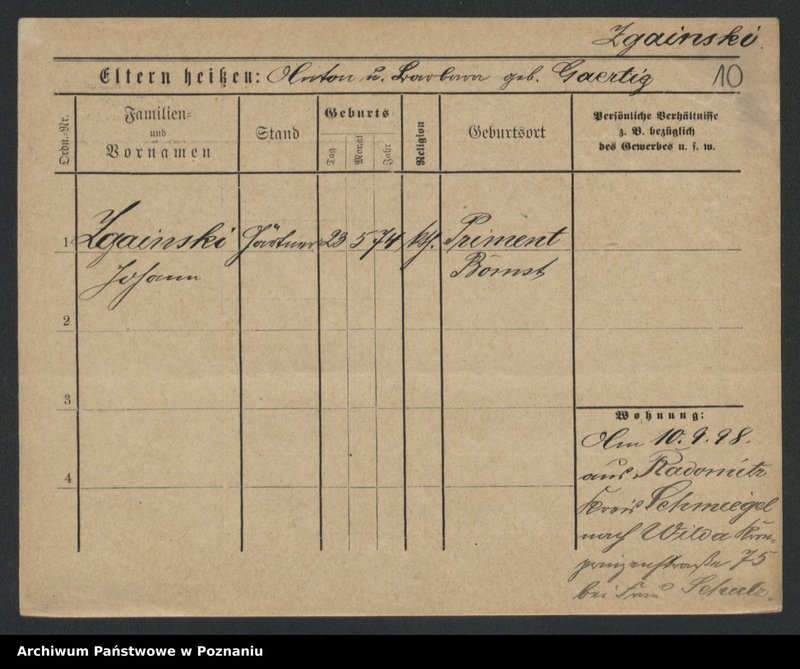 Zgainski.
Eltern heißen: Anton u. Barbara geb. Gaertig
10
Ordn.-Nr.
Familien-
und
Vornamen
Stand
Geburts-
Tag
Monat
Jahr
Religion
Geburtsort
Persönliche Verhältnisse
z. B. bezüglich
des Gewerbes u. s. w.
1 Zgainski Gärtner 23 5 74 kth. Priment
Johann Bomst
2
3
4
Wohnung:
Am 10.9.98.
aus Radomitz
Kreis Schmiegel
nach Wilda Kron-
prinzenstraße 75
bei Frau Schulz.
Archiwum Państwowe w Poznaniu